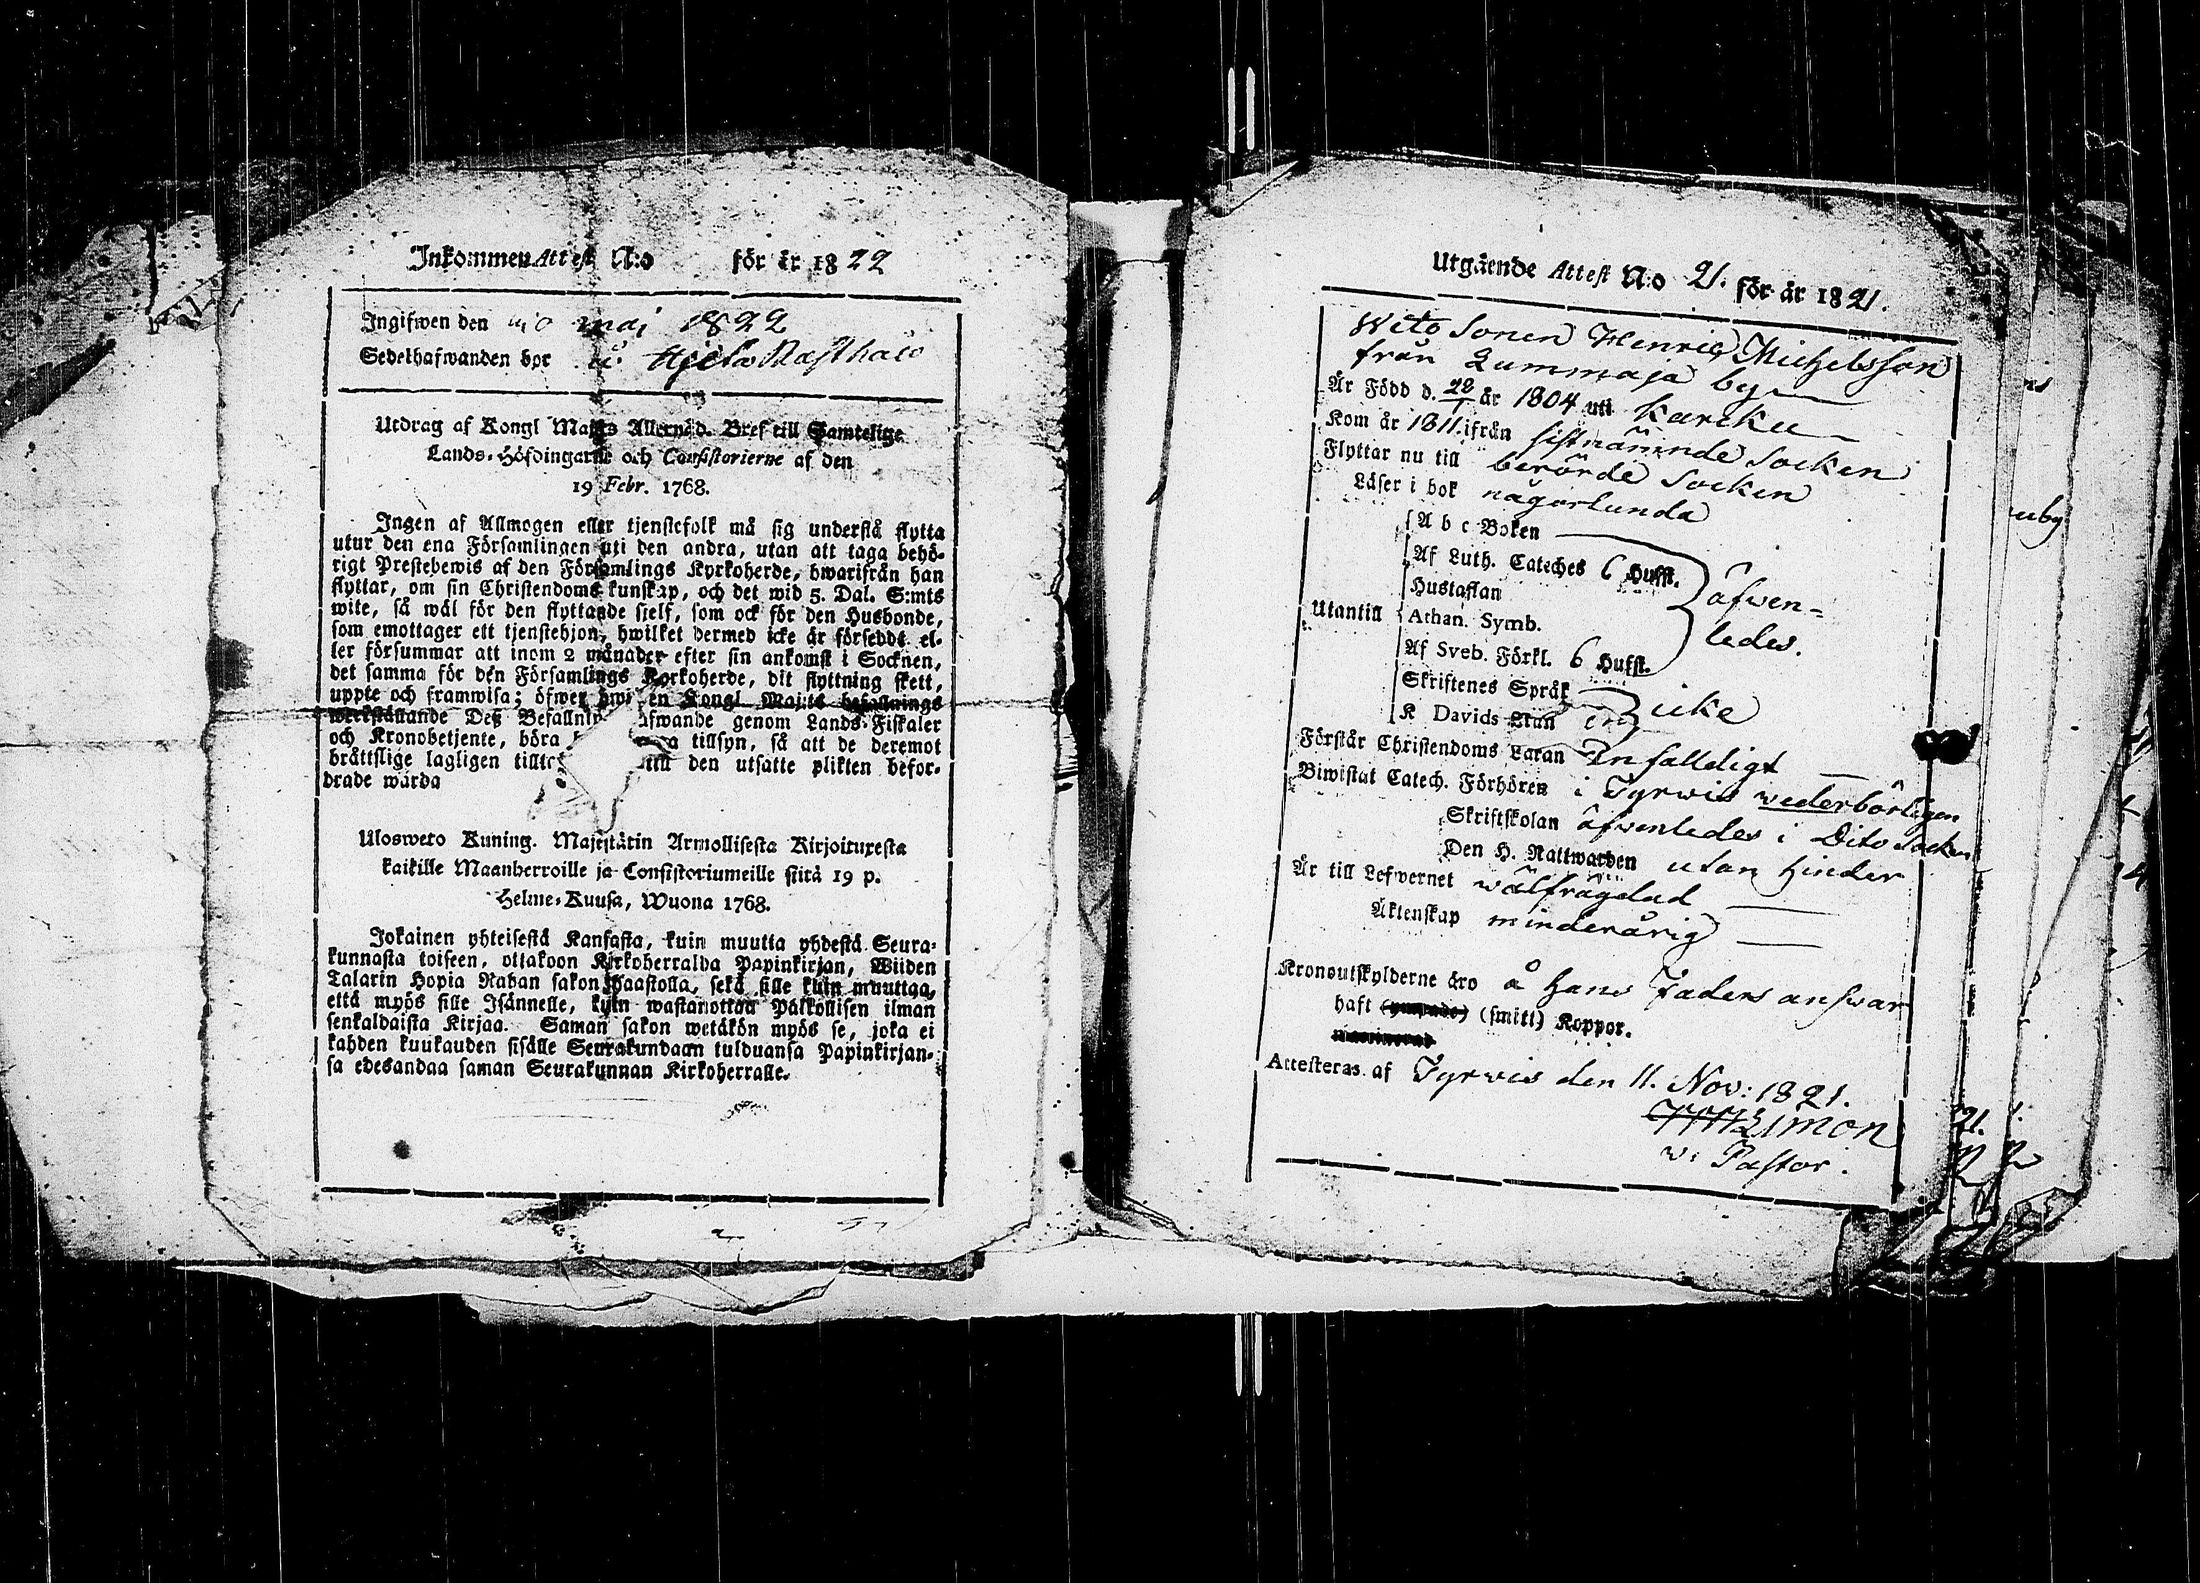 Inkommen Attest N:o för år 1822
Ingifwen den maj 1822
Sedelhafwanden bor Hjelo Rasthåld
Utdrag af Kongl Maj:ts Allernåd. Bref till Samtelige
Lands-Höfdingarne och Consistorierne af den
19 Febr. 1768.
Ingen af Allmogen eller tjenstefolk må sig understå flytta
utur den ena Församlingen uti den andra, utan att taga behö-
rigt Prestebewis af den Församlings Kyrkoherde, hwarifrån han
flyttar, om sin Christendoms kunskap, och det wid 5. Dal. S:mts
wite, så wäl för den flyttande sielf, som ock för den Husbonde,
som emottager ett tjenstehjon, hwilket dermed icke är försedt, el-
ler försummar att inom 2 månader efter sin ankomst i Socknen,
det samma för den Församlings Kyrkoherde, dit flyttning skett,
uppte och framwisa; öfwer en Kongl Maj:ts befallnings
werkställande Deß afwande genom Lands-Fiskaler
och Kronobetjente, böra tillsyn, så att de deremot
bråttslige lagligen till den utsatte plikten befor-
drade warda
Ulosweto Kuning. Majestätin Armollisesta Kirjoituxesta
kaikille Maanherroille ja Consistoriumeille siitä 19 p.
Helme-Kuusa, Wuona 1768.
Jokainen yhteisestä Kansasta, kuin muutta yhdestä Seura-
kunnasta toiseen, ottakoon Kirkoherralda Papinkirjan, Wiiden
Talarin Hopia Rahan sakon haastolla, sekä sille kuin muuttaa,
että myös sille Isännelle, kuin wastanottaa Palkollisen ilman
senkaldaista Kirjaa. Saman sakon wetäkön myös se, joka ei
kahden kuukauden sisälle Seurakundaan tulduansa Papinkirjan-
sa edesandaa saman Seurakunnan Kirkoherralle.
Utgående Attest N:o 21. för år 1821.
Sonen Henric Michelsson
från Lummaja by
Är Född d. 28/1 år 1804 uti Karcku
Kom år 1811. ifrån sistnämnde Socken
Flyttar nu till berörde Socken
Läser i bok någorlunda
Utantill
A b c Boken
Af Luth. Cateches 6 Hufst.
Hustaflan
Athan. Symb.
Af Sveb. Förkl. 6 Hufst.
äfwen=
ledes.
Skriftenes Språk
K Davids icke
Förstår Christendoms Läran Enfaldigt
Biwistat Catech. Förhören i Tyrwis wederbörligen
Skriftskolan äfwenledes i Dito Socken
Den H. Nattwarden utan hinder
Är till Lefwernet wälfrägdad
Äktenskap minderårig
Kronoutskylderne äro å hans Faders answar
haft (smitt) Koppor.
Attesteras af Tyrwis den 11. Nov: 1821.
Limon
v: Pastor.